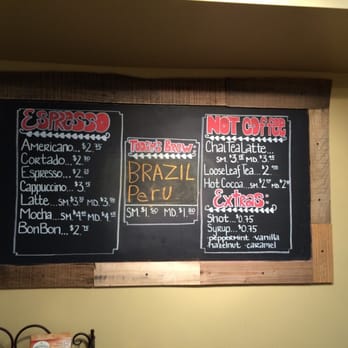 ESPRESSO
Americano...$2.25
Cortado...$2.80
Espresso...$2.
Cappuccino...$3.
Latte...SM $3. MD $3.
Mocha...SM $4. MD $4.
BonBon...$2.
Today's Brew
BRAZIL
Peru
SM $1.50 MD $1.80
NOT COFFEE
Chai Tea Latte...
SM $3. MD $3.
Loose Leaf Tea...$2.
Hot Cocoa SM $2. MD $2.
Extras:
Shot...$0.75
Syrup...$0.75
peppermint vanilla
hazelnut caramel